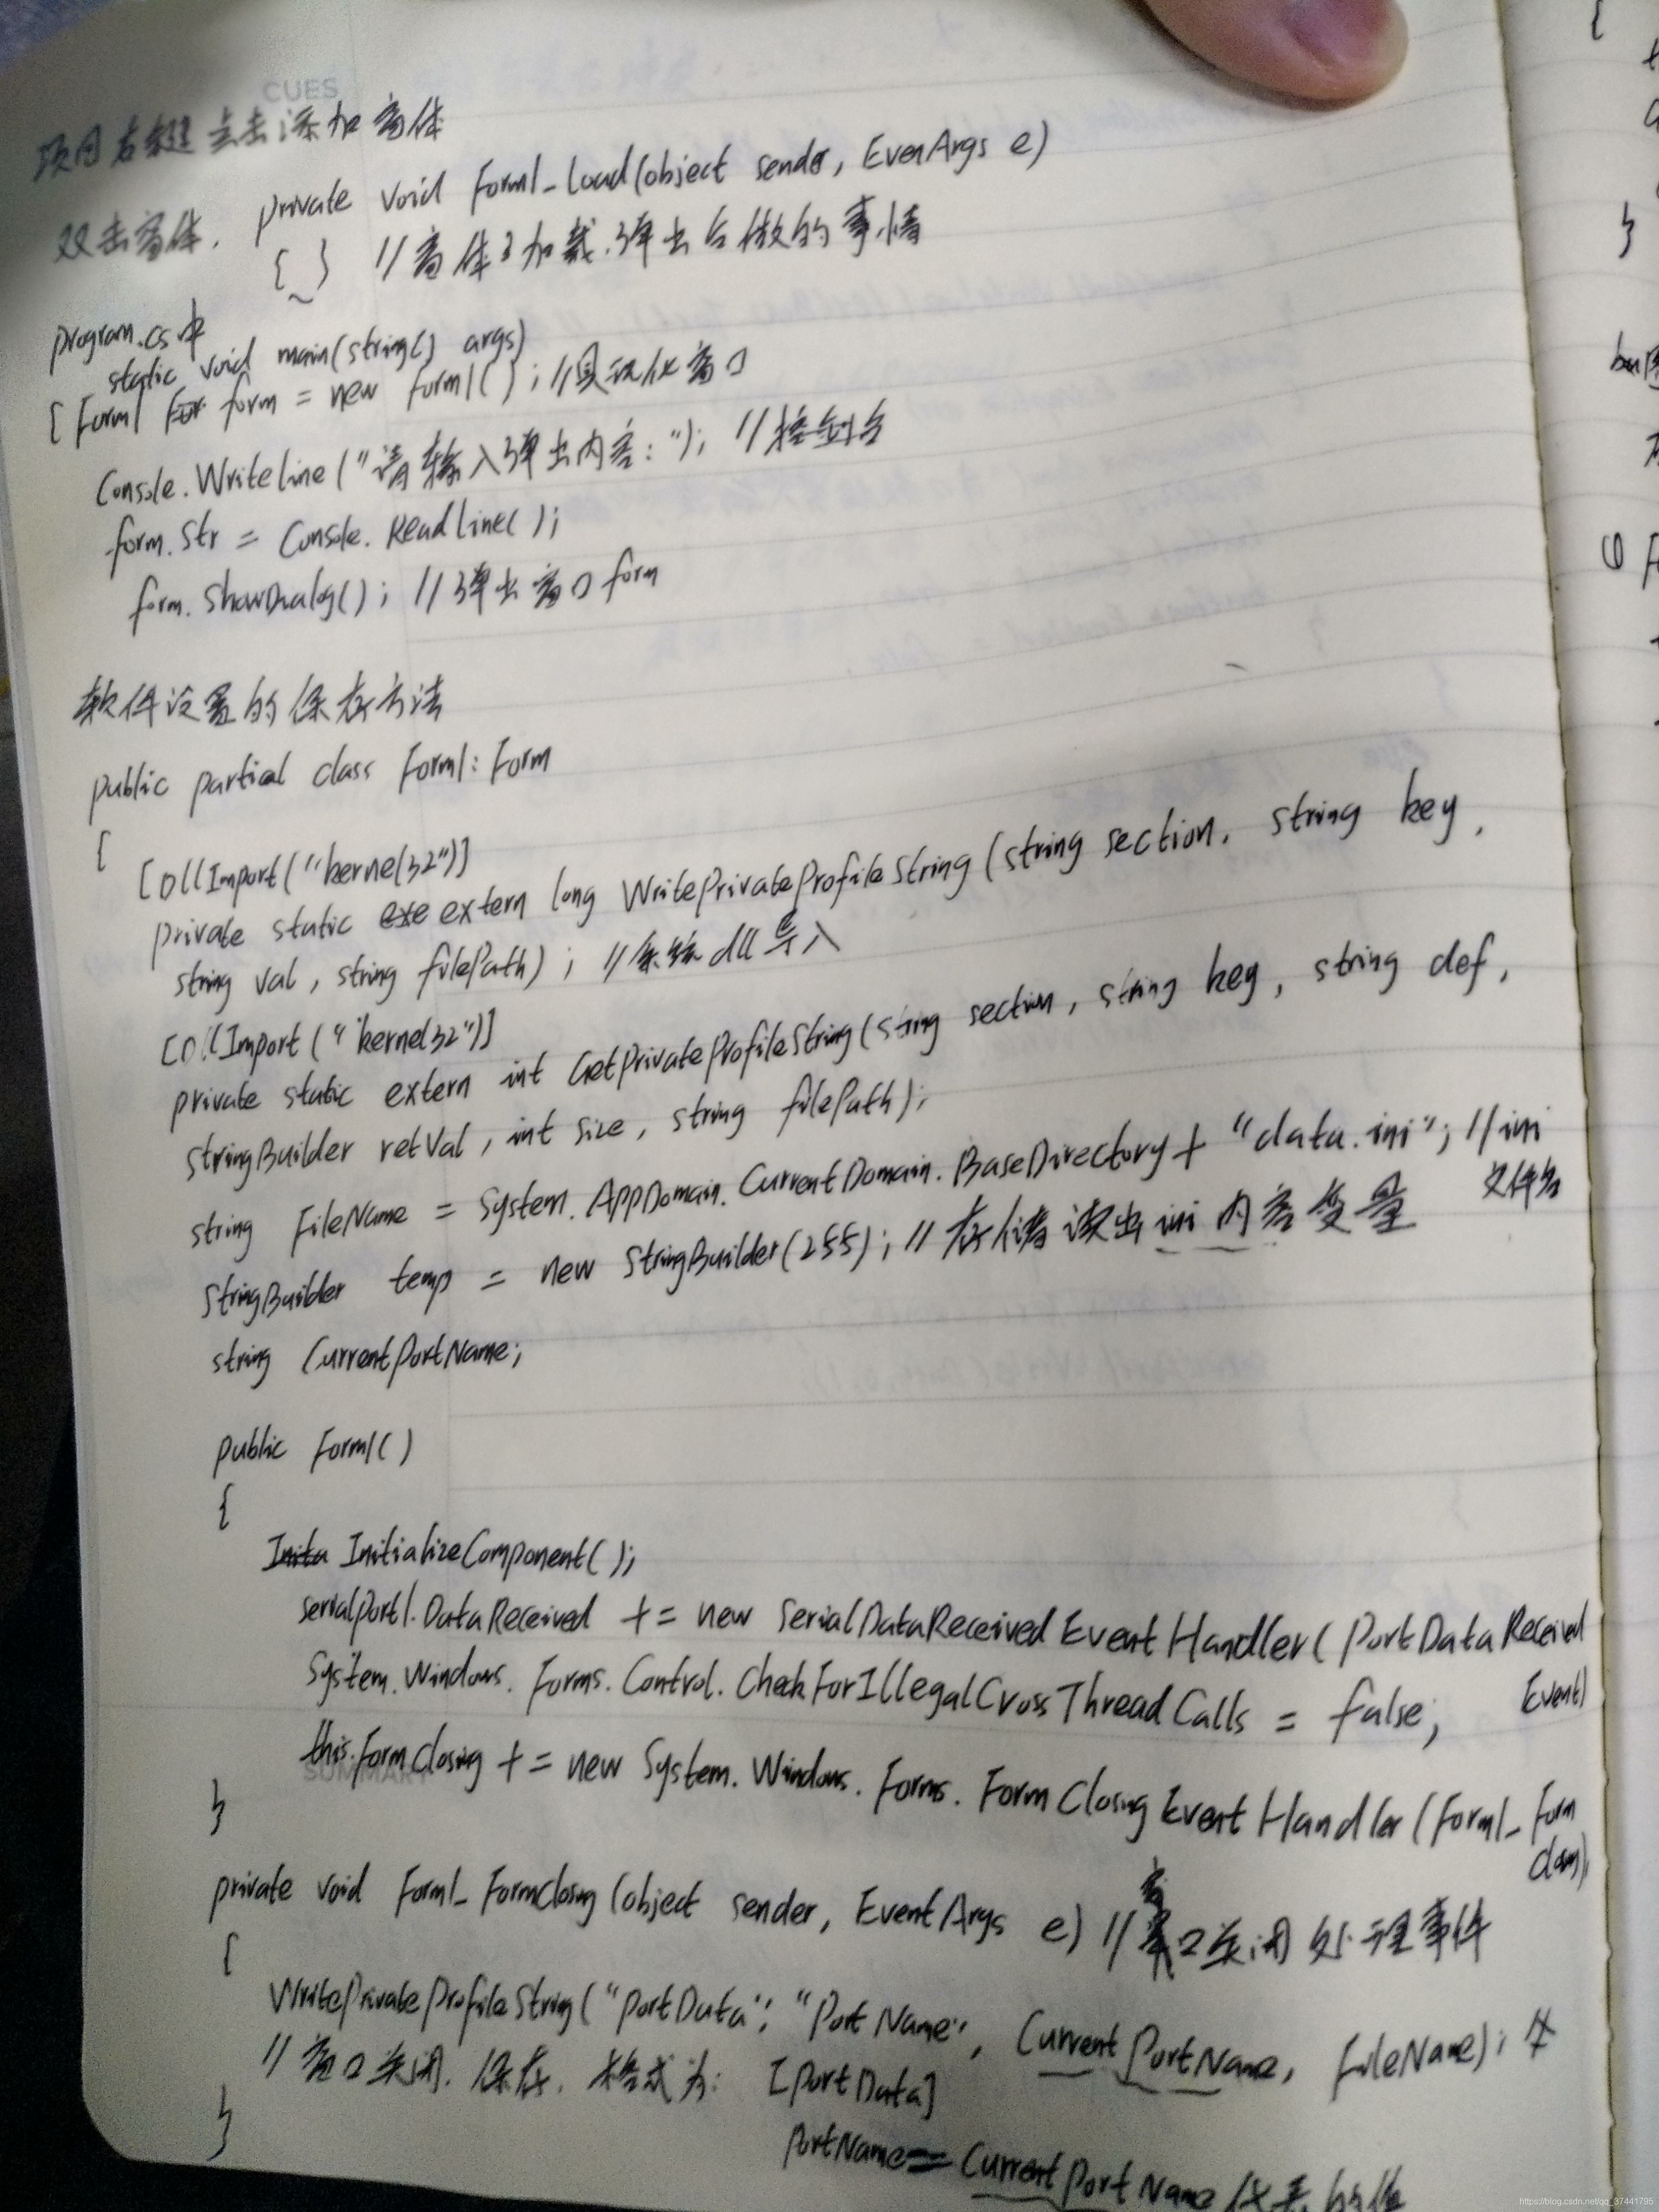 CUES
项目右键点击添加窗体
双击窗体, private void Form1_Load(object sender, EvenArgs e)
{ ~ } //窗体了加载.弹出后做的事情
program.cs中
static void main(string[] args)
{ Form1 form = new Form1(); //具现化窗口
Console.WriteLine("请输入弹出内容:"); //控制台
form.str = Console.ReadLine();
form.ShowDialog(); //弹出窗口form
软件设置的保存方法
public partial class Form1: Form
{
[DllImport("kernel32")]
private static extern long WritePrivateProfileString(string section, string key,
string val, string filePath); //系统dll导入
[DllImport("kernel32")]
private static extern int GetPrivateProfileString(string section, string key, string def,
StringBuilder retVal, int size, string filePath);
string FileName = System.AppDomain.CurrentDomain.BaseDirectory + "data.ini"; //ini
文件名
StringBuilder temp = new StringBuilder(255); //存储读出ini内容变量
string CurrentPortName;
public Form1()
{
InitializeComponent();
serialPort1.DataReceived += new SerialDataReceivedEventHandler(PortDataReceived
Event)
System.Windows.Forms.Control.CheckForIllegalCrossThreadCalls = false;
this.FormClosing += new System.Windows.Forms.FormClosingEventHandler(Form1_Form
SUMMARY
}
private void Form1_FormClosing(object sender, EventArgs e) //窗口关闭处理事件
{
WritePrivateProfileString("PortData", "PortName", CurrentPortName, FileName);
//窗口关闭.保存.格式为: [PortData]
}
PortName = CurrentPortName
https://blog.csdn.net/qq_37441795